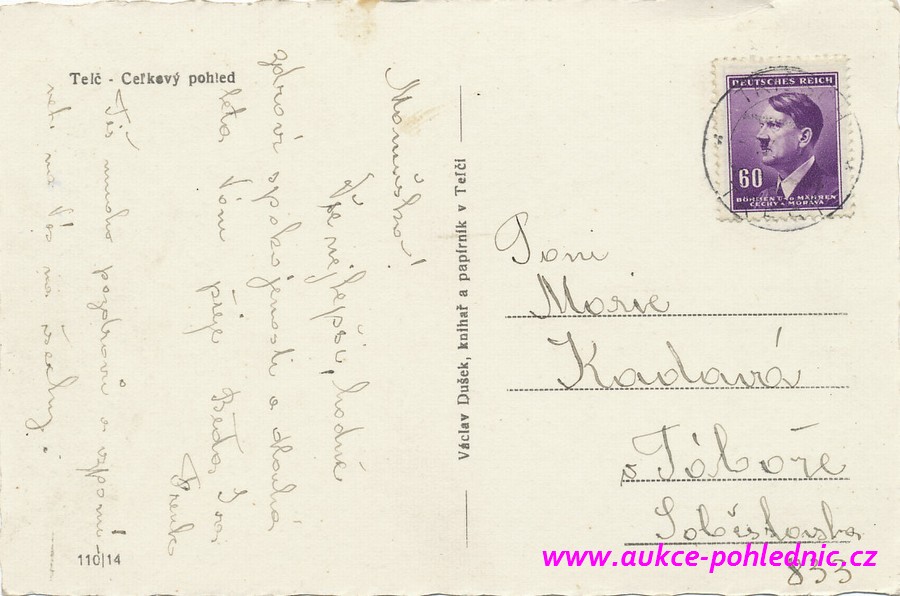 Telč - Celkový pohled
Maruško!
Vše nejlepší, hodně
zdraví spokojenosti a dlouhá
léta Vám přeje Béda, Iva,
Též mnoho pozdravů a vzpomí-
na Vás na všechny.
110/14
Václav Dušek, knihař a papírník v Telči
DEUTSCHES REICH
60
BÖHMEN UND MÄHREN
ČECHY A MORAVA
Paní
Marie
Kadavá
v Táboře
Soběslavská
833
www.aukce-pohlednic.cz